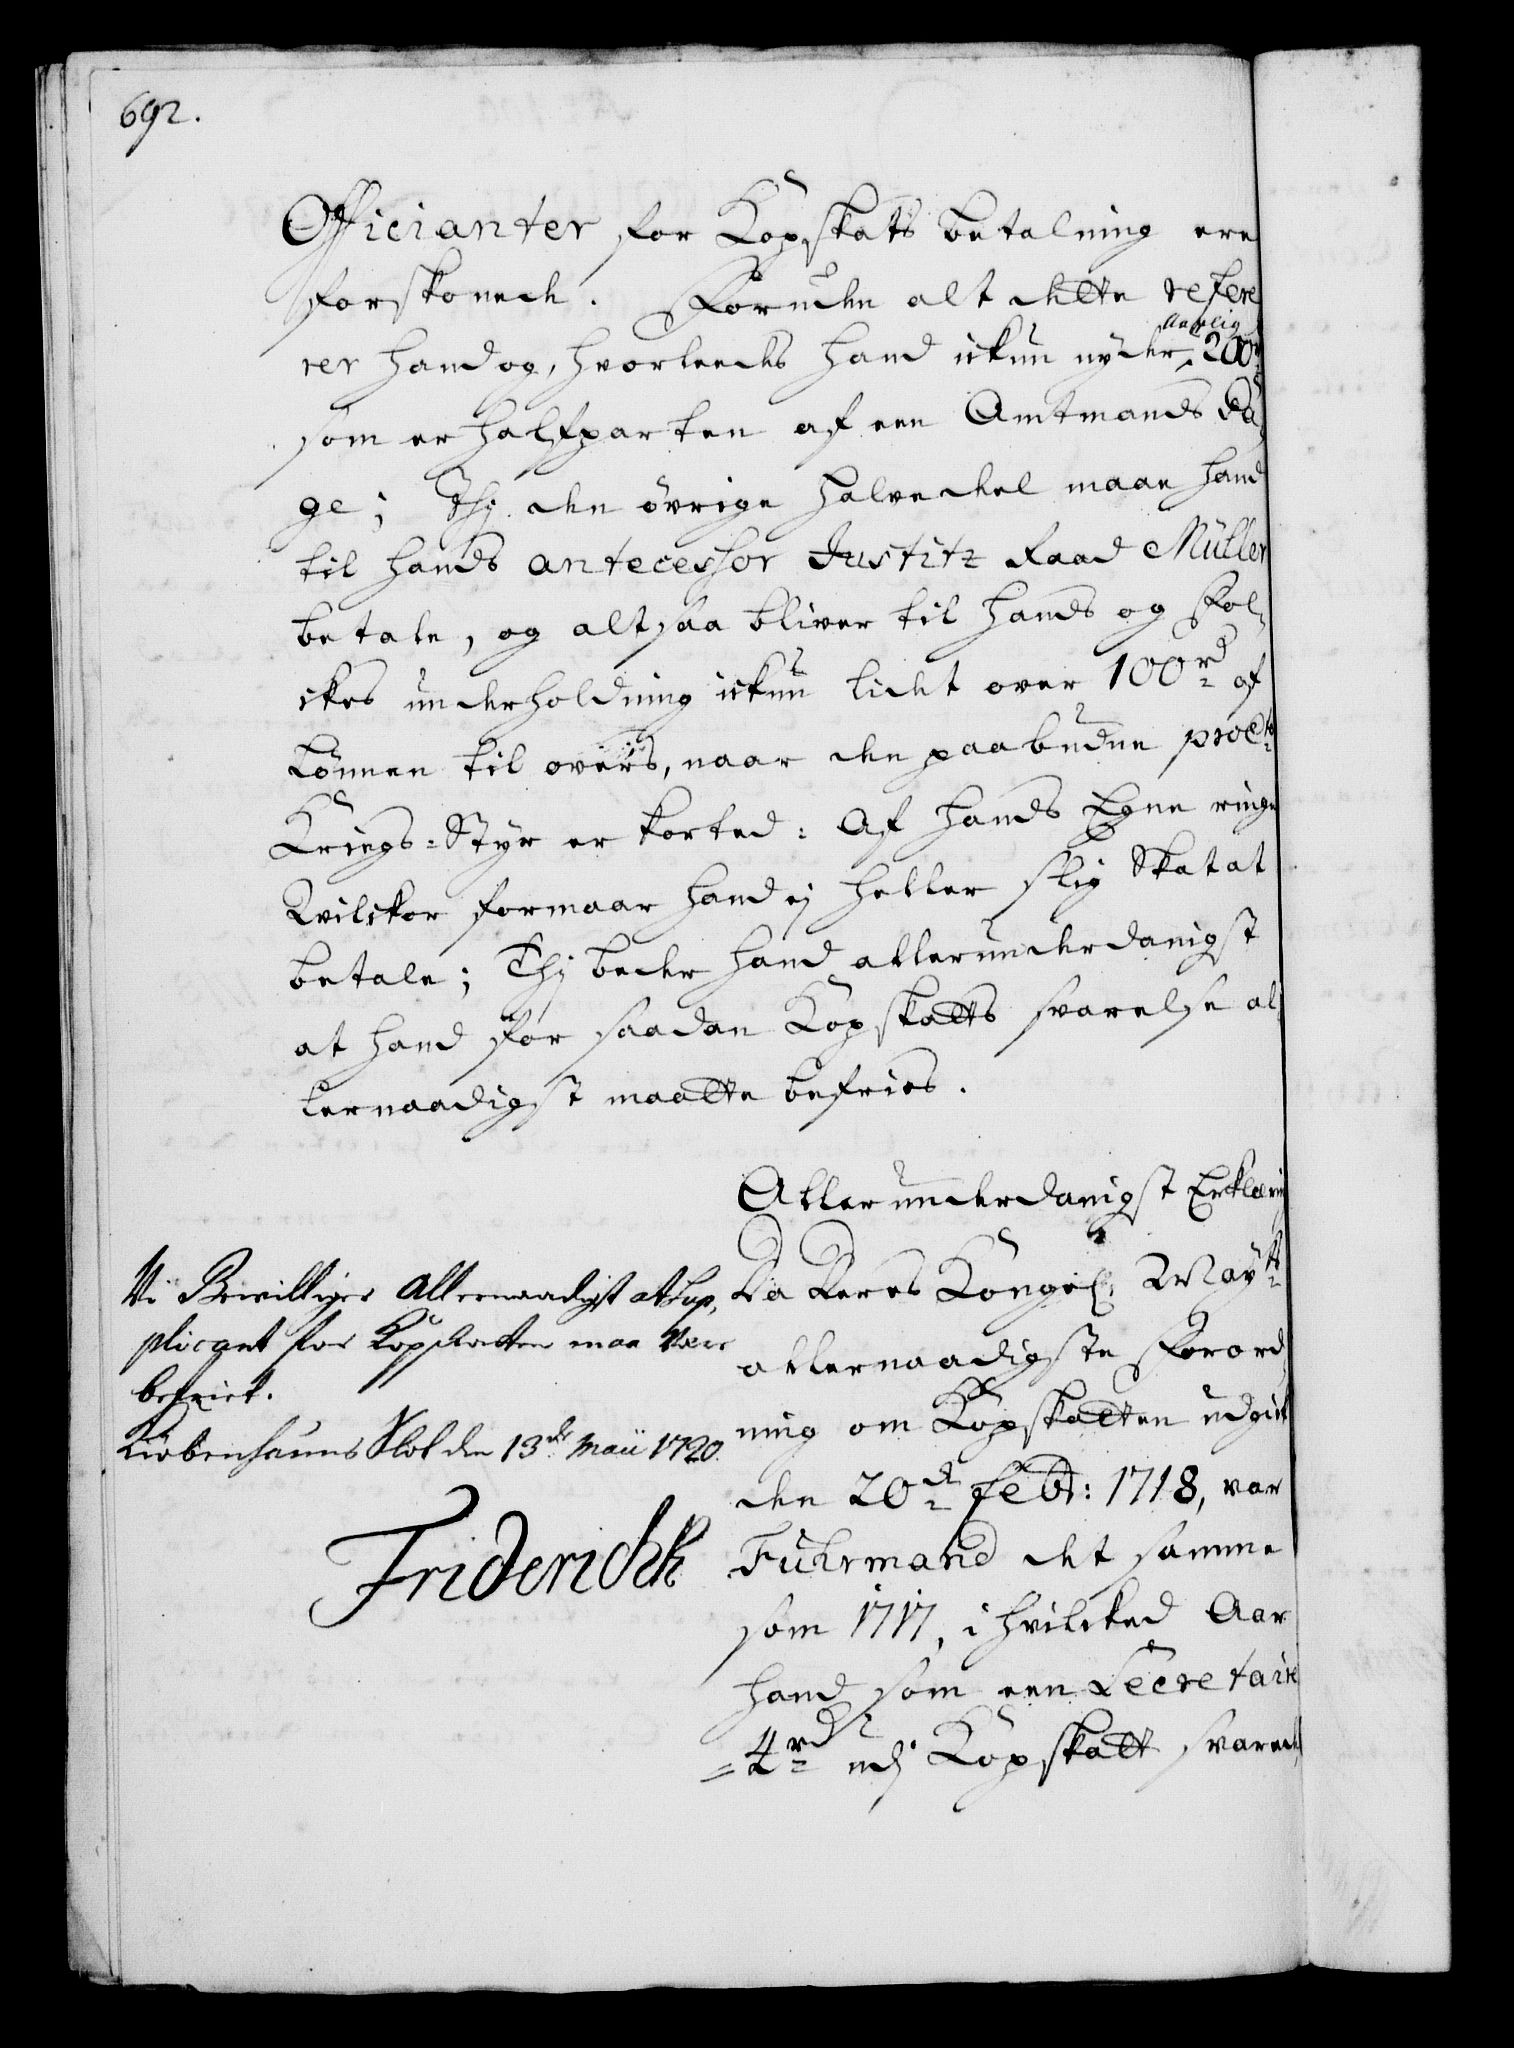 692.
Officianter for Kopskats betalning ere
forskonede. Foruden alt dette refere
rer hand og, hvorleedes hand ickun nyder aarlig 200 rd
som er halfparten af een Amtmands Ga¬
ge; Thj den övrige halvedeel maae hand
til hands antecessor Justitz Raad Müller
betale, og altsaa bliver til hands og Fol¬
ckes underholdning ickun lidet over 100 rd af
Lönnen til overs, naar den paabudne procto
Krigs=Styr er korted: Af hands Egne ringe
Vilckor formaar hand ej heller slig Skat at
betale; Thj beder hand allerunderdanigst
at hand for saadan Kopskatts svarelse al¬
lernaadigst maatte befries.
Allerunderdanigst Erklæring
Da Deres Kongel. Mayts
allernaadigste Forord¬
ning om Kopskatten udgik
den 20de Febr: 1718, var
Fuhrmand det samme
som 1717, i hvilcked Aar
hand som een Secretaire
=4 rd udj Kopskatt svarede
Vi Bevilliger Allernaadigst at Sup¬
plicant for Kopskatten maa Være
befriet.
Kiøbenhauns Slot den 13de Maii 1720.
Friderich R